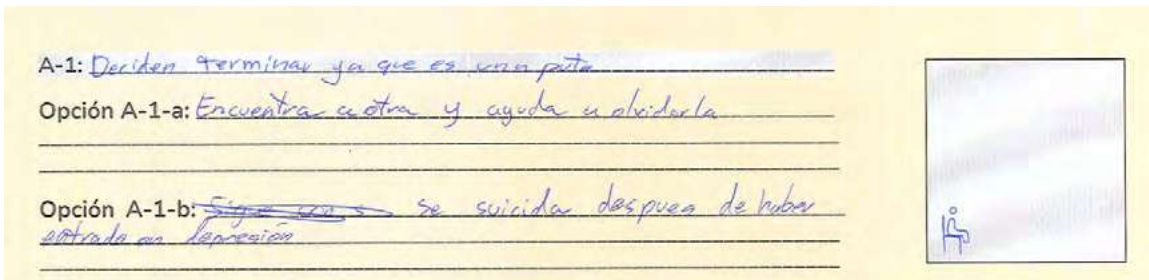 A-1: Deciden terminar ya que es una puta
Opción A-1-a: Encuentra a otra y ayuda a olvidarla
Opción A-1-b: Sigue con s se suicida despues de haber
entrado en depresión